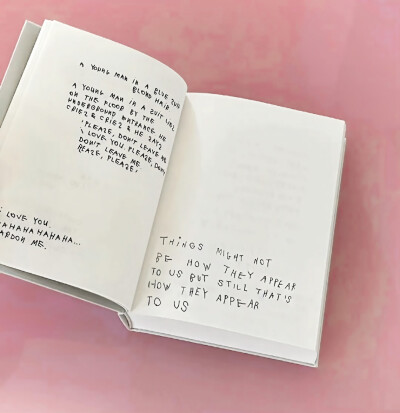 A YOUNG MAN IN A BLUE SUIT
BLOND HAIR
A YOUNG MAN IN A SUIT LIES
ON THE FLOOR BY THE
UNDERGROUND ENTRANCE HE
CRIES & CRIES & HE SAYS
PLEASE, DON'T LEAVE ME
I LOVE YOU PLEASE, DON'T
DON'T LEAVE ME
PLEASE, PLEASE,
I LOVE YOU.
HAHAHAHAHAHA...
PARDON ME.
THINGS MIGHT NOT
BE HOW THEY APPEAR
TO US BUT STILL THAT'S
HOW THEY APPEAR
TO US